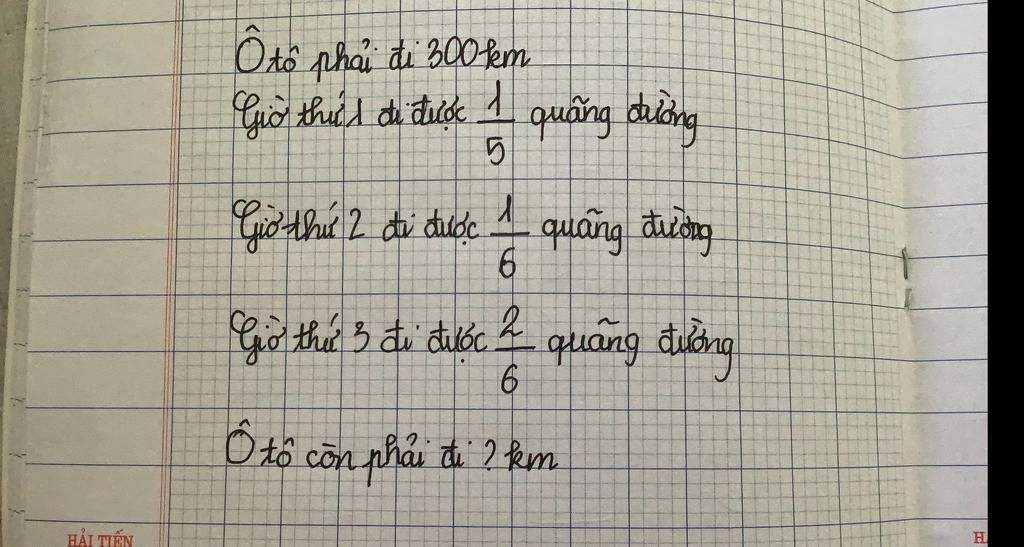 Ô tô phải đi 300 km
Giờ thứ 1 đi được 1/5 quãng đường
Giờ thứ 2 đi được 1/6 quãng đường
Giờ thứ 3 đi được 2/6 quãng đường
Ô tô còn phải đi ? km
HẢI TIẾN